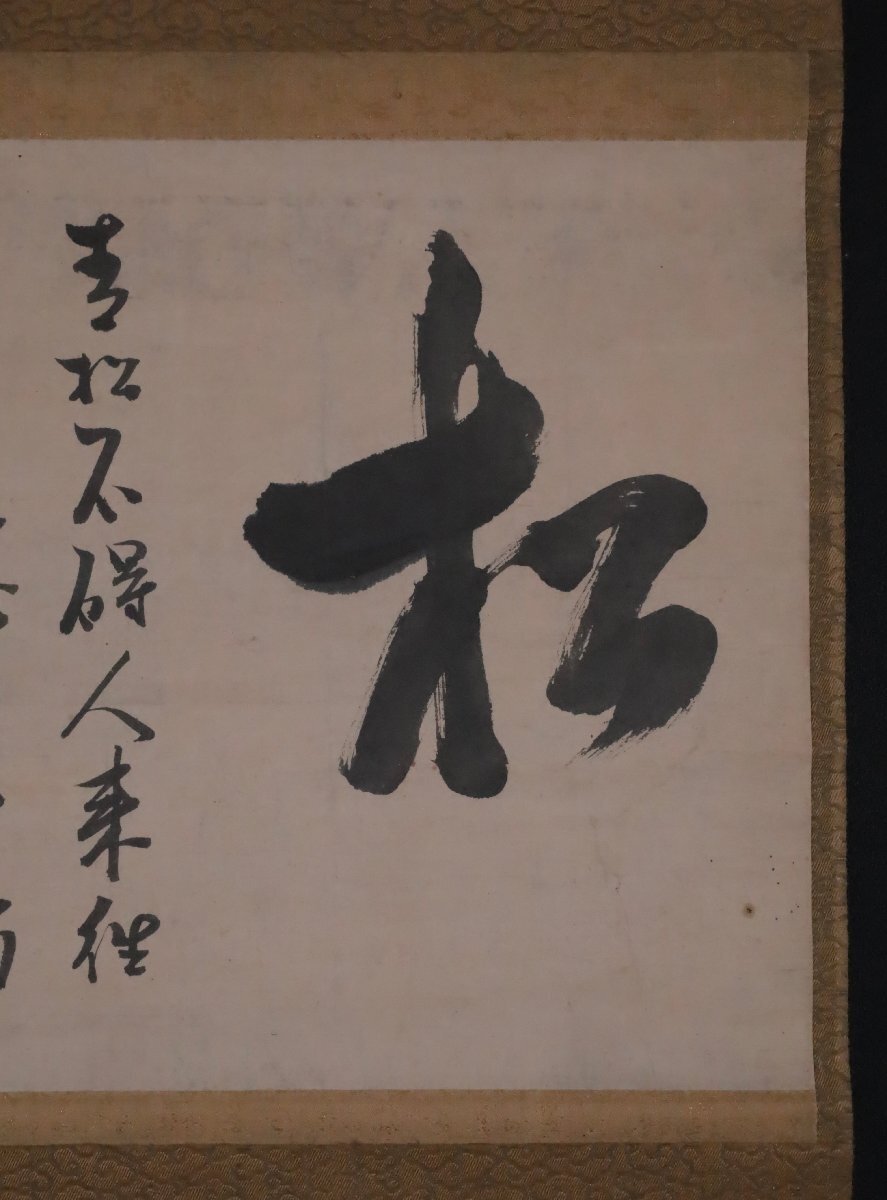 松
青松不碍人来往